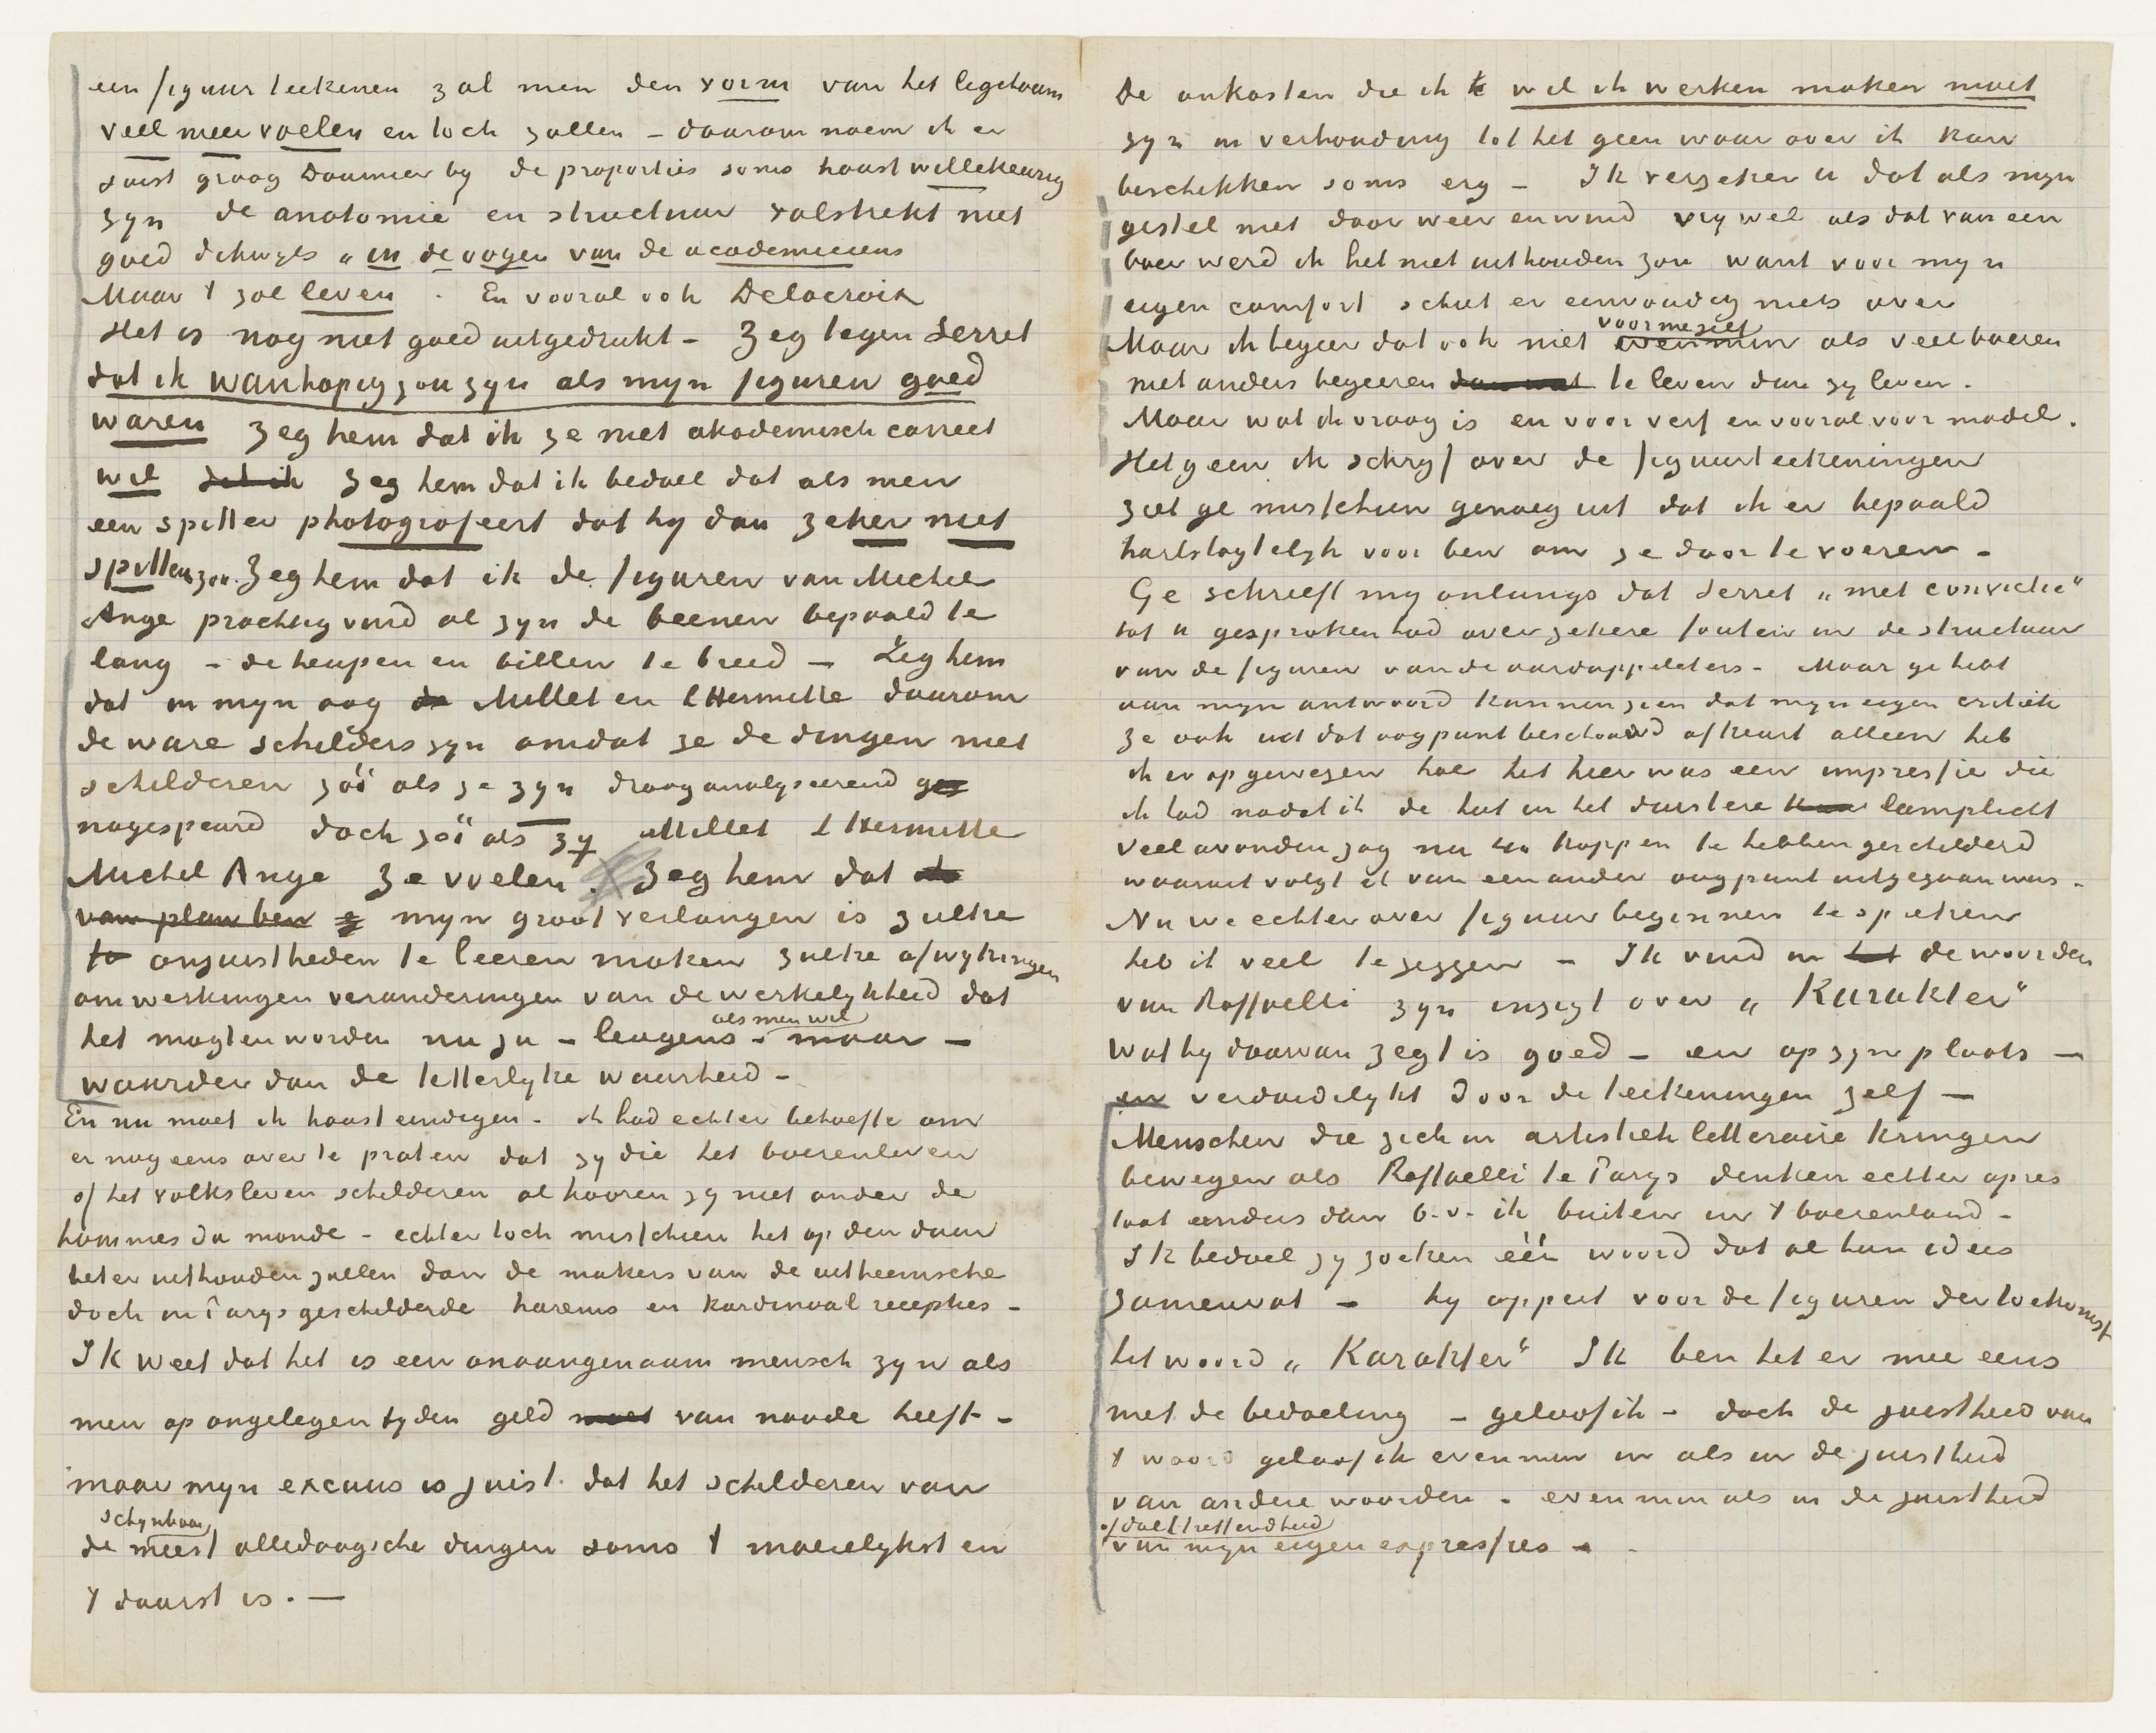 een figuur teekenen zal men den vorm van het ligchaam
veel meer voelen en toch zullen – daarom noem ik er
juist graag Daumier by de proporties soms haast willekeurig
zyn de anatomie en structuur volstrekt niet
goed dikwyls „in de oogen van de academiciens
Maar 't zal leven. En vooral ook Delacroix
Het is nog niet goed uitgedrukt – Zeg tegen Serret
dat ik wanhopig zou zyn als myn figuren goed
waren Zeg hem dat ik ze niet akademisch correct
wil dat ik Zeg hem dat ik bedoel dat als men
een spitter photografeert dat hy dan zeker niet
spitten zou. Zeg hem dat ik de figuren van Michel
Ange prachtig vind al zyn de beenen bepaald te
lang – de heupen en billen te breed – Zeg hem
dat in myn oog de Millet en Lhermitte daarom
de ware schilders zyn omdat ze de dingen niet
schilderen zóó als ze zyn droog analyseerend
nagespeurd doch zóó als zy Millet Lhermitte
Michel Ange ze voelen. Zeg hem dat
van plan ben myn groot verlangen is zulke
to onjuistheden te leeren maken zulke afwykingen
omwerkingen veranderingen van de werkelykheid dat
het mogten worden nu ja – leugens als men wil – maar –
waarder dan de letterlyke waarheid –
En nu moet ik haast eindigen – ik had echter behoefte om
er nog eens over te praten dat zy die het boerenleven
of het volksleven schilderen al hooren zy niet onder de
hommes du monde – echter toch misschien het op den duur
beter uithouden zullen dan de makers van de uitheemsche
doch in Parys geschilderde harems en kardinaal recepties –
Ik weet dat het is een onaangenaam mensch zyn als
men op ongelegen tyden geld moet van noode heeft –
maar myn excuus is juist dat het schilderen van
de schynbaar meest alledaagsche dingen soms 't moeielykst en
't duurst is. —
De onkosten die ik wil ik werken maken moet
zyn in verhouding tot het geen waar over ik kan
beschikken soms erg – Ik verzeker u dat als myn
gestel niet door weer en wind vry wel als dat van een
boer werd ik het niet uithouden zou want voor myn
eigen comfort schiet er eenvoudig niets over
Maar ik begeer dat ook niet voor mezelf evenmin als veel boeren
niet anders begeeren dan wat te leven dan zy leven.
Maar wat ik vraag is en voor verf en vooral voor model.
Hetgeen ik schryf over de figuurteekeningen
ziet ge misschien genoeg uit dat ik er bepaald
hartstogtelyk voor ben om ze door te voeren –
Ge schreeft my onlangs dat Serret „met convictie"
tot u gesproken had over zekere fouten in de structuur
van de figuren van de aardappeleters – Maar ge hebt
aan myn antwoord kunnen zien dat myn eigen critiek
ze ook uit dat oogpunt beschouwd afkeurt alleen heb
ik er op gewezen hoe het hier was een impressie die
ik had nadat ik de hut in het duistere lamplicht
veel avonden zag na 40 koppen te hebben geschilderd
waaruit volgt ik van een ander oogpunt uitgegaan was –
Nu we echter over figuur beginnen te spreken
heb ik veel te zeggen – Ik vind in het de woorden
van Raffaelli zyn inzigt over „Karakter"
Wat hy daarvan zegt is goed – en op zyn plaats –
en verduidelykt door de teekeningen zelf –
Menschen die zich in artistiek letteraire kringen
bewegen als Raffaelli te Parys denken echter après
tout anders dan b.v. ik buiten in 't boerenland –
Ik bedoel zy zoeken één woord dat al hun idees
zamenvat – hy oppert voor de figuren der toekomst
het woord „Karakter" Ik ben het er mee eens
met de bedoeling – geloof ik – doch de juistheid van
't woord geloof ik evenmin in als in de juistheid
van andere woorden – evenmin als in de juistheid
of doeltreffendheid
van myn eigen expressies –